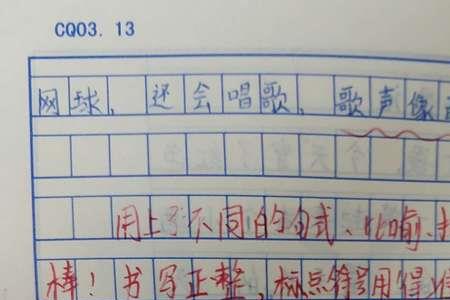 CQ03. 13
网球，还会唱歌，歌声像
用上了不同的句式、比喻、
棒！书写正整，标点符号用得